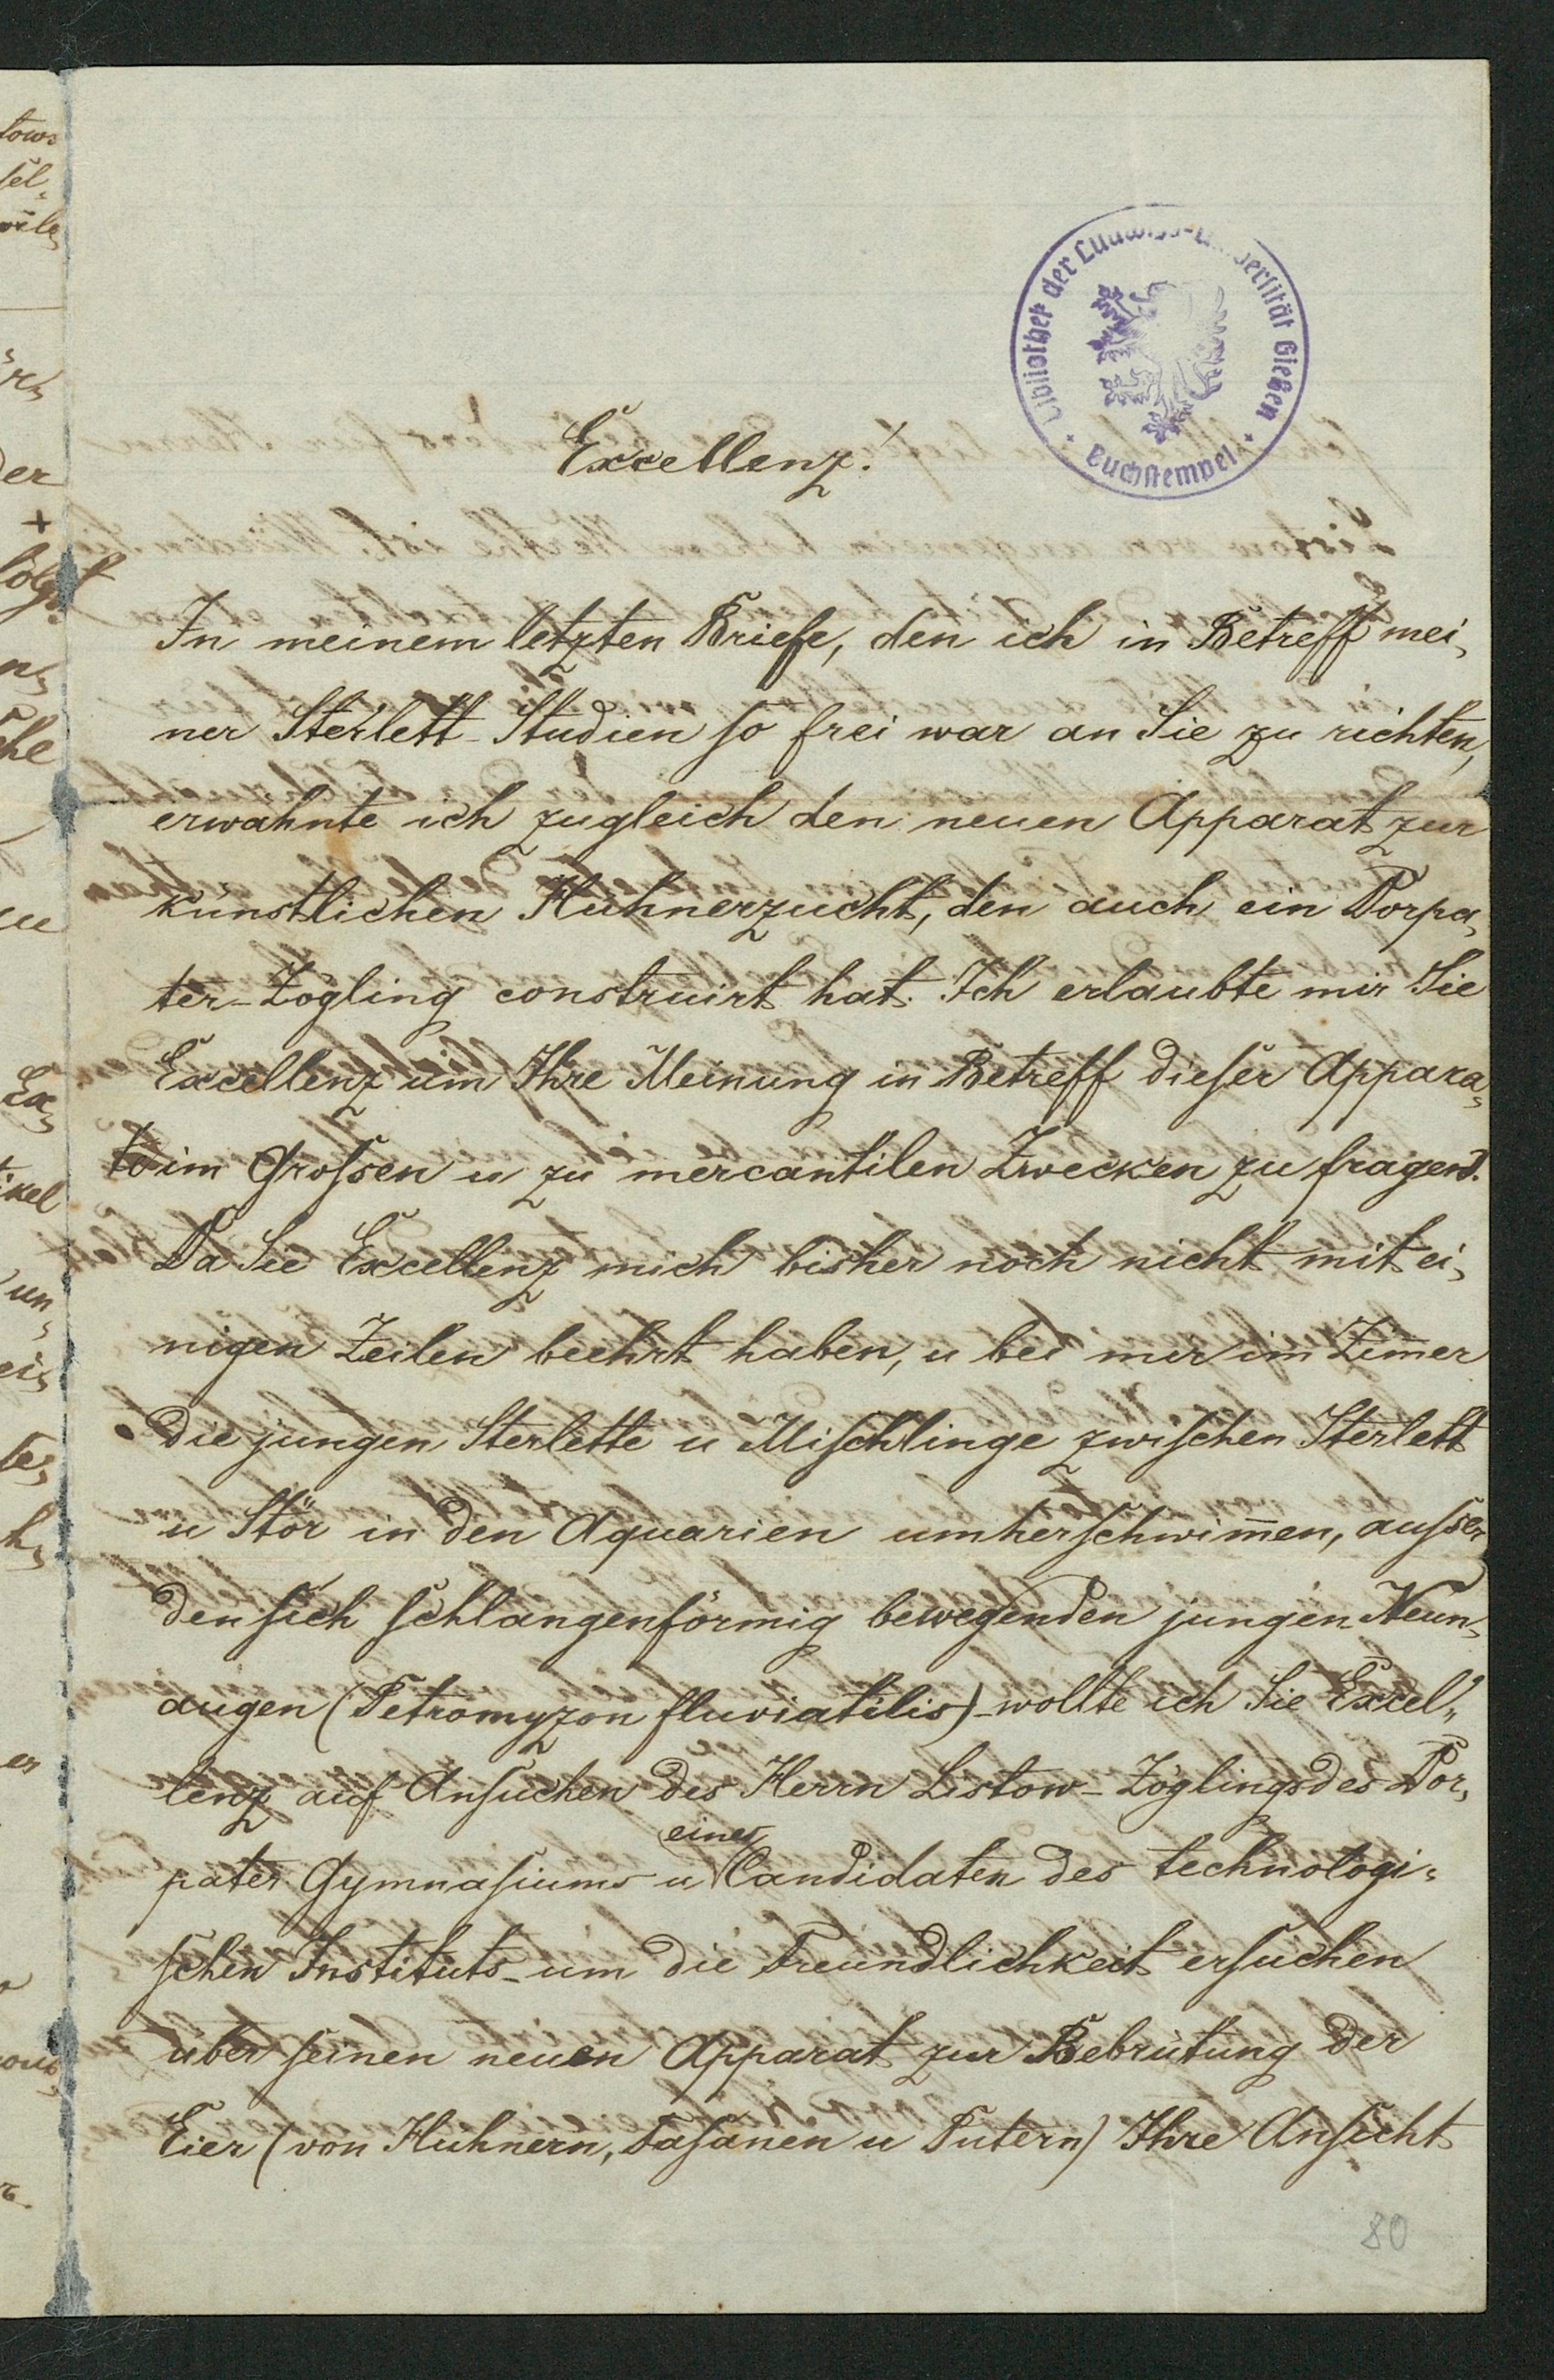 Bibliothek der Ludwigs-Universität Gießen
Buchstempel
Excellenz!
In meinem letzten Briefe, den ich in Betreff mei,
ner Sterlett-Studien so frei war an Sie zu richten,
erwähnte ich zugleich den neuen Apparat zur
künstlichen Hühnerzucht, den auch ein Dorpa,
ter-Zögling construirt hat. Ich erlaubte mir Sie
Excellenz um Ihre Meinung in Betreff dieser Appara,
te im Grossen u zu mercantilen Zwecken zu fragen.
Da Sie Excellenz mich bisher noch nicht mit ei,
nigen Zeilen beehrt haben, u bei mir im Zim̅er
die jungen Sterlette u Mischlinge zwischen Sterlett
u Stör in den Aquarien umherschwim̅en, ausser
den sich schlangenförmig bewegenden jungen Neun,
augen (Petromyzon fluviatilis) - wollte ich Sie Excel,,
lenz auf Ansuchen des Herrn Listow - Zöglings des Dor,
pater Gymnasiums u eines Candidaten des technologi,
schen Instituts - um die Freundlichkeit ersuchen
über seinen neuen Apparat zur Bebrütung der
Eier (von Hühnern, Fasanen u Putern) Ihre Ansicht
80